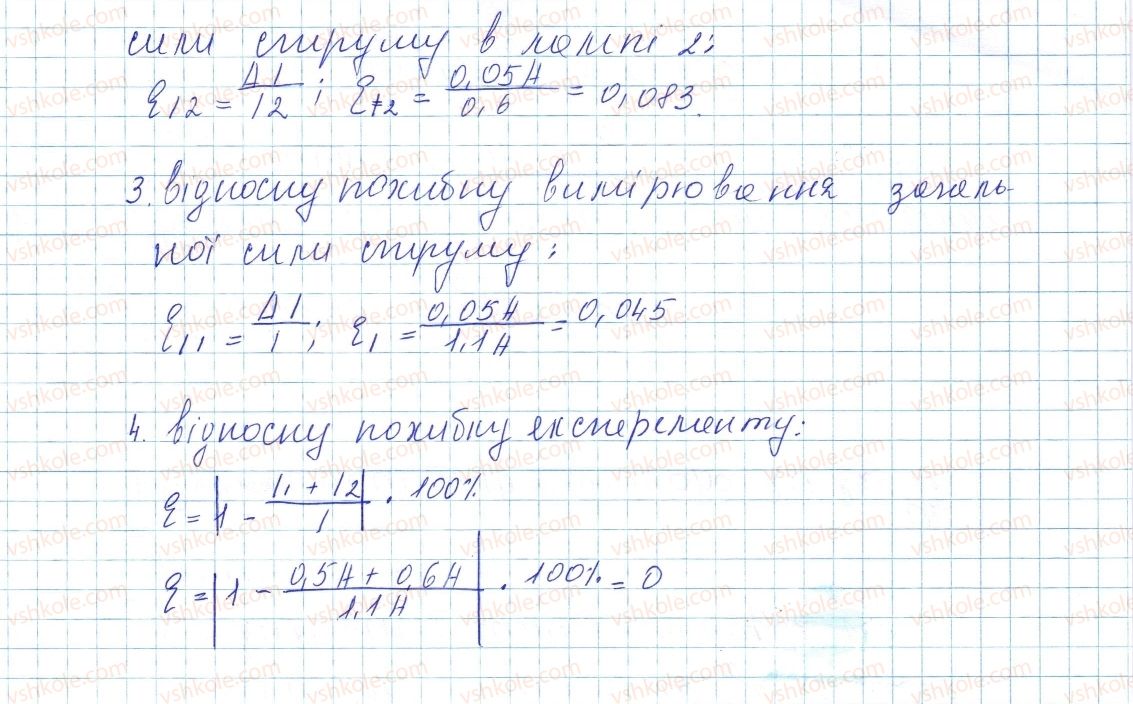 сили струму в лампі 2:
ξI2 = ΔI/I2; ξI2 = 0,05A/0,6 = 0,083.
3. відносну похибку вимірювання загаль-
ної сили струму:
ξI1 = ΔI/I; ξI = 0,05A/1,1A = 0,045
4. відносну похибку експеременту:
ξ = |1 - I1 + I2/I| · 100%
ξ = |1 - 0,5A + 0,6A/1,1A| · 100% = 0
vshkole.com